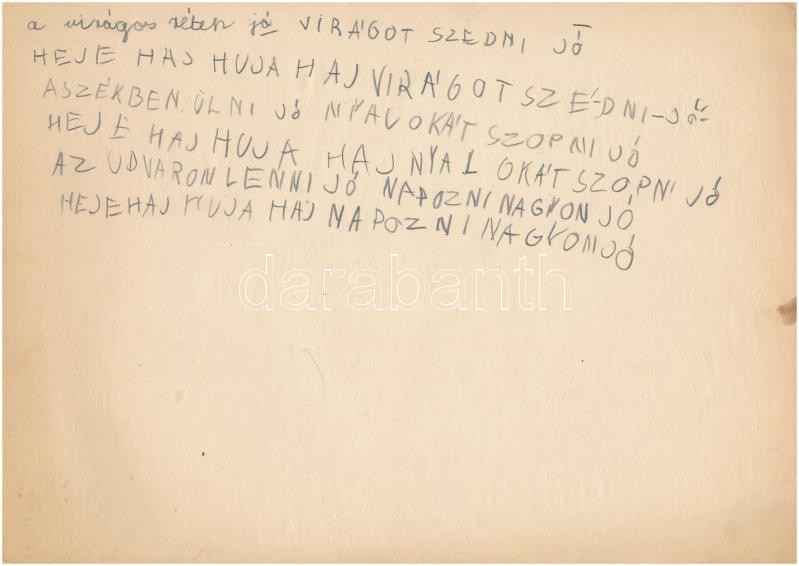 a virágos réten jó VIRÁGOT SZEDNI JÓ
HEJE HAJ HUJA HAJ VIRÁGOT SZÉ-DNI-JÓ-
ASZÉKBEN ÜLNI JÓ NYALOKÁT SZOPNI JÓ
HEJE HAJ HUJA HAJ NYALOKÁT SZOPNI JÓ
AZ UDVARON LENNI JÓ NAPOZNI NAGYON JÓ
HEJEHAJ HUJA HAJ NAPOZNI NAGYON JÓ
darabanth